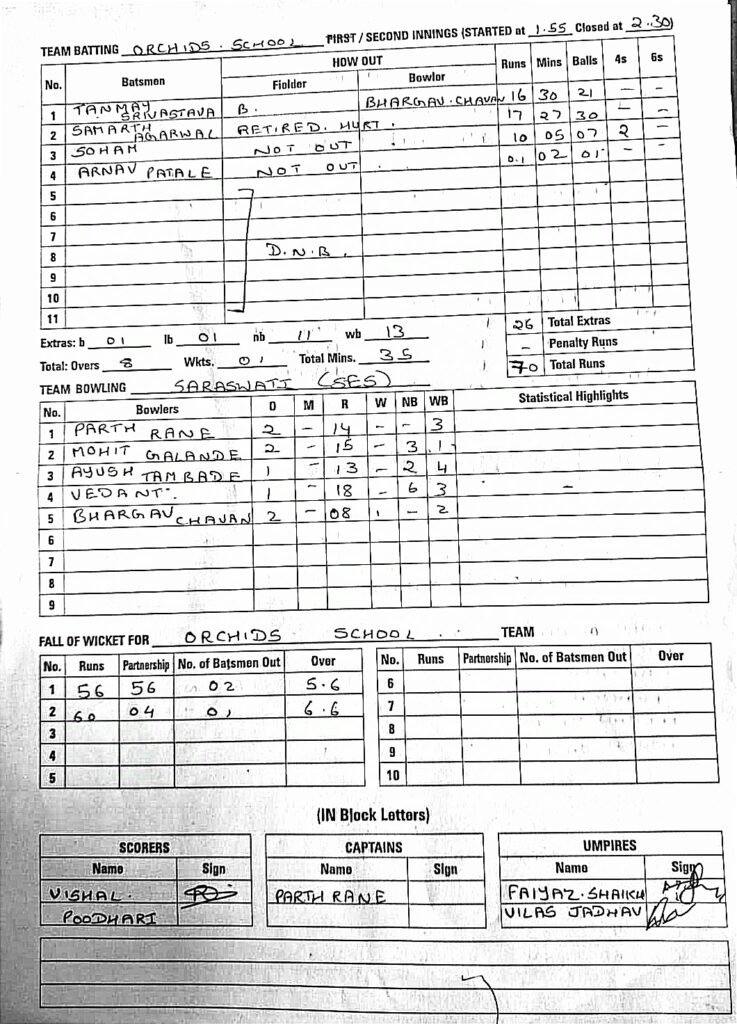 TEAM BATTING ORCHIDS. SCHOOL FIRST / SECOND INNINGS (STARTED at 1.55 Closed at 2.30)
No. Batsmen HOW OUT Runs Mins Balls 4s 6s
Fielder Bowler
1 TANMAY SRIVASTAVA B. BHARGAV. CHAVAN 16 30 21 – –
2 SAMARTH AGARWAL RETIRED. HURT. 17 27 30 – –
3 SOHAM NOT OUT 10 05 07 2 –
4 ARNAV PATALE NOT OUT 01 02 01 – –
5
6
7
8 D.N.B.
9
10
11
Extras: b 01 lb 01 nb 11 wb 13 26 Total Extras
– Penalty Runs
Total: Overs 8 Wkts. 01 Total Mins. 35 70 Total Runs
TEAM BOWLING SARASWATI (SES)
No. Bowlers O M R W NB WB Statistical Highlights
1 PARTH RANE 2 – 14 – – 3
2 MOHIT GALANDE 2 – 15 – 3 1
3 AYUSH TAMBADE 1 – 13 – 2 4
4 VEDANT. 1 – 18 – 6 3 –
5 BHARGAV CHAVAN 2 – 08 1 – 2
6
7
8
9
FALL OF WICKET FOR ORCHIDS SCHOOL TEAM
No. Runs Partnership No. of Batsmen Out Over No. Runs Partnership No. of Batsmen Out Over
1 56 56 02 5.6 6
2 60 04 01 6.6 7
3 8
4 9
5 10
(IN Block Letters)
SCORERS CAPTAINS UMPIRES
Name Sign Name Sign Name Sign
VISHAL. PARTH RANE FAIYAZ. SHAIKH
POODHARI VILAS JADHAV